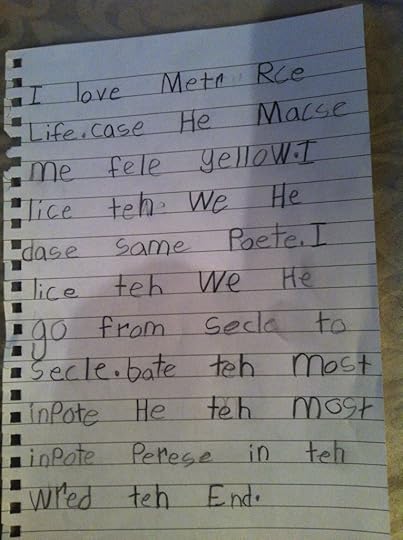 I love Metr Rce
Life.case He Macse
me fele yelloW.I
lice teh We He
dase same Poete.I
lice teh We He
go from Secle to
Secle.bate teh most
inPote He teh most
inpote Perese in teh
Wred teh End.